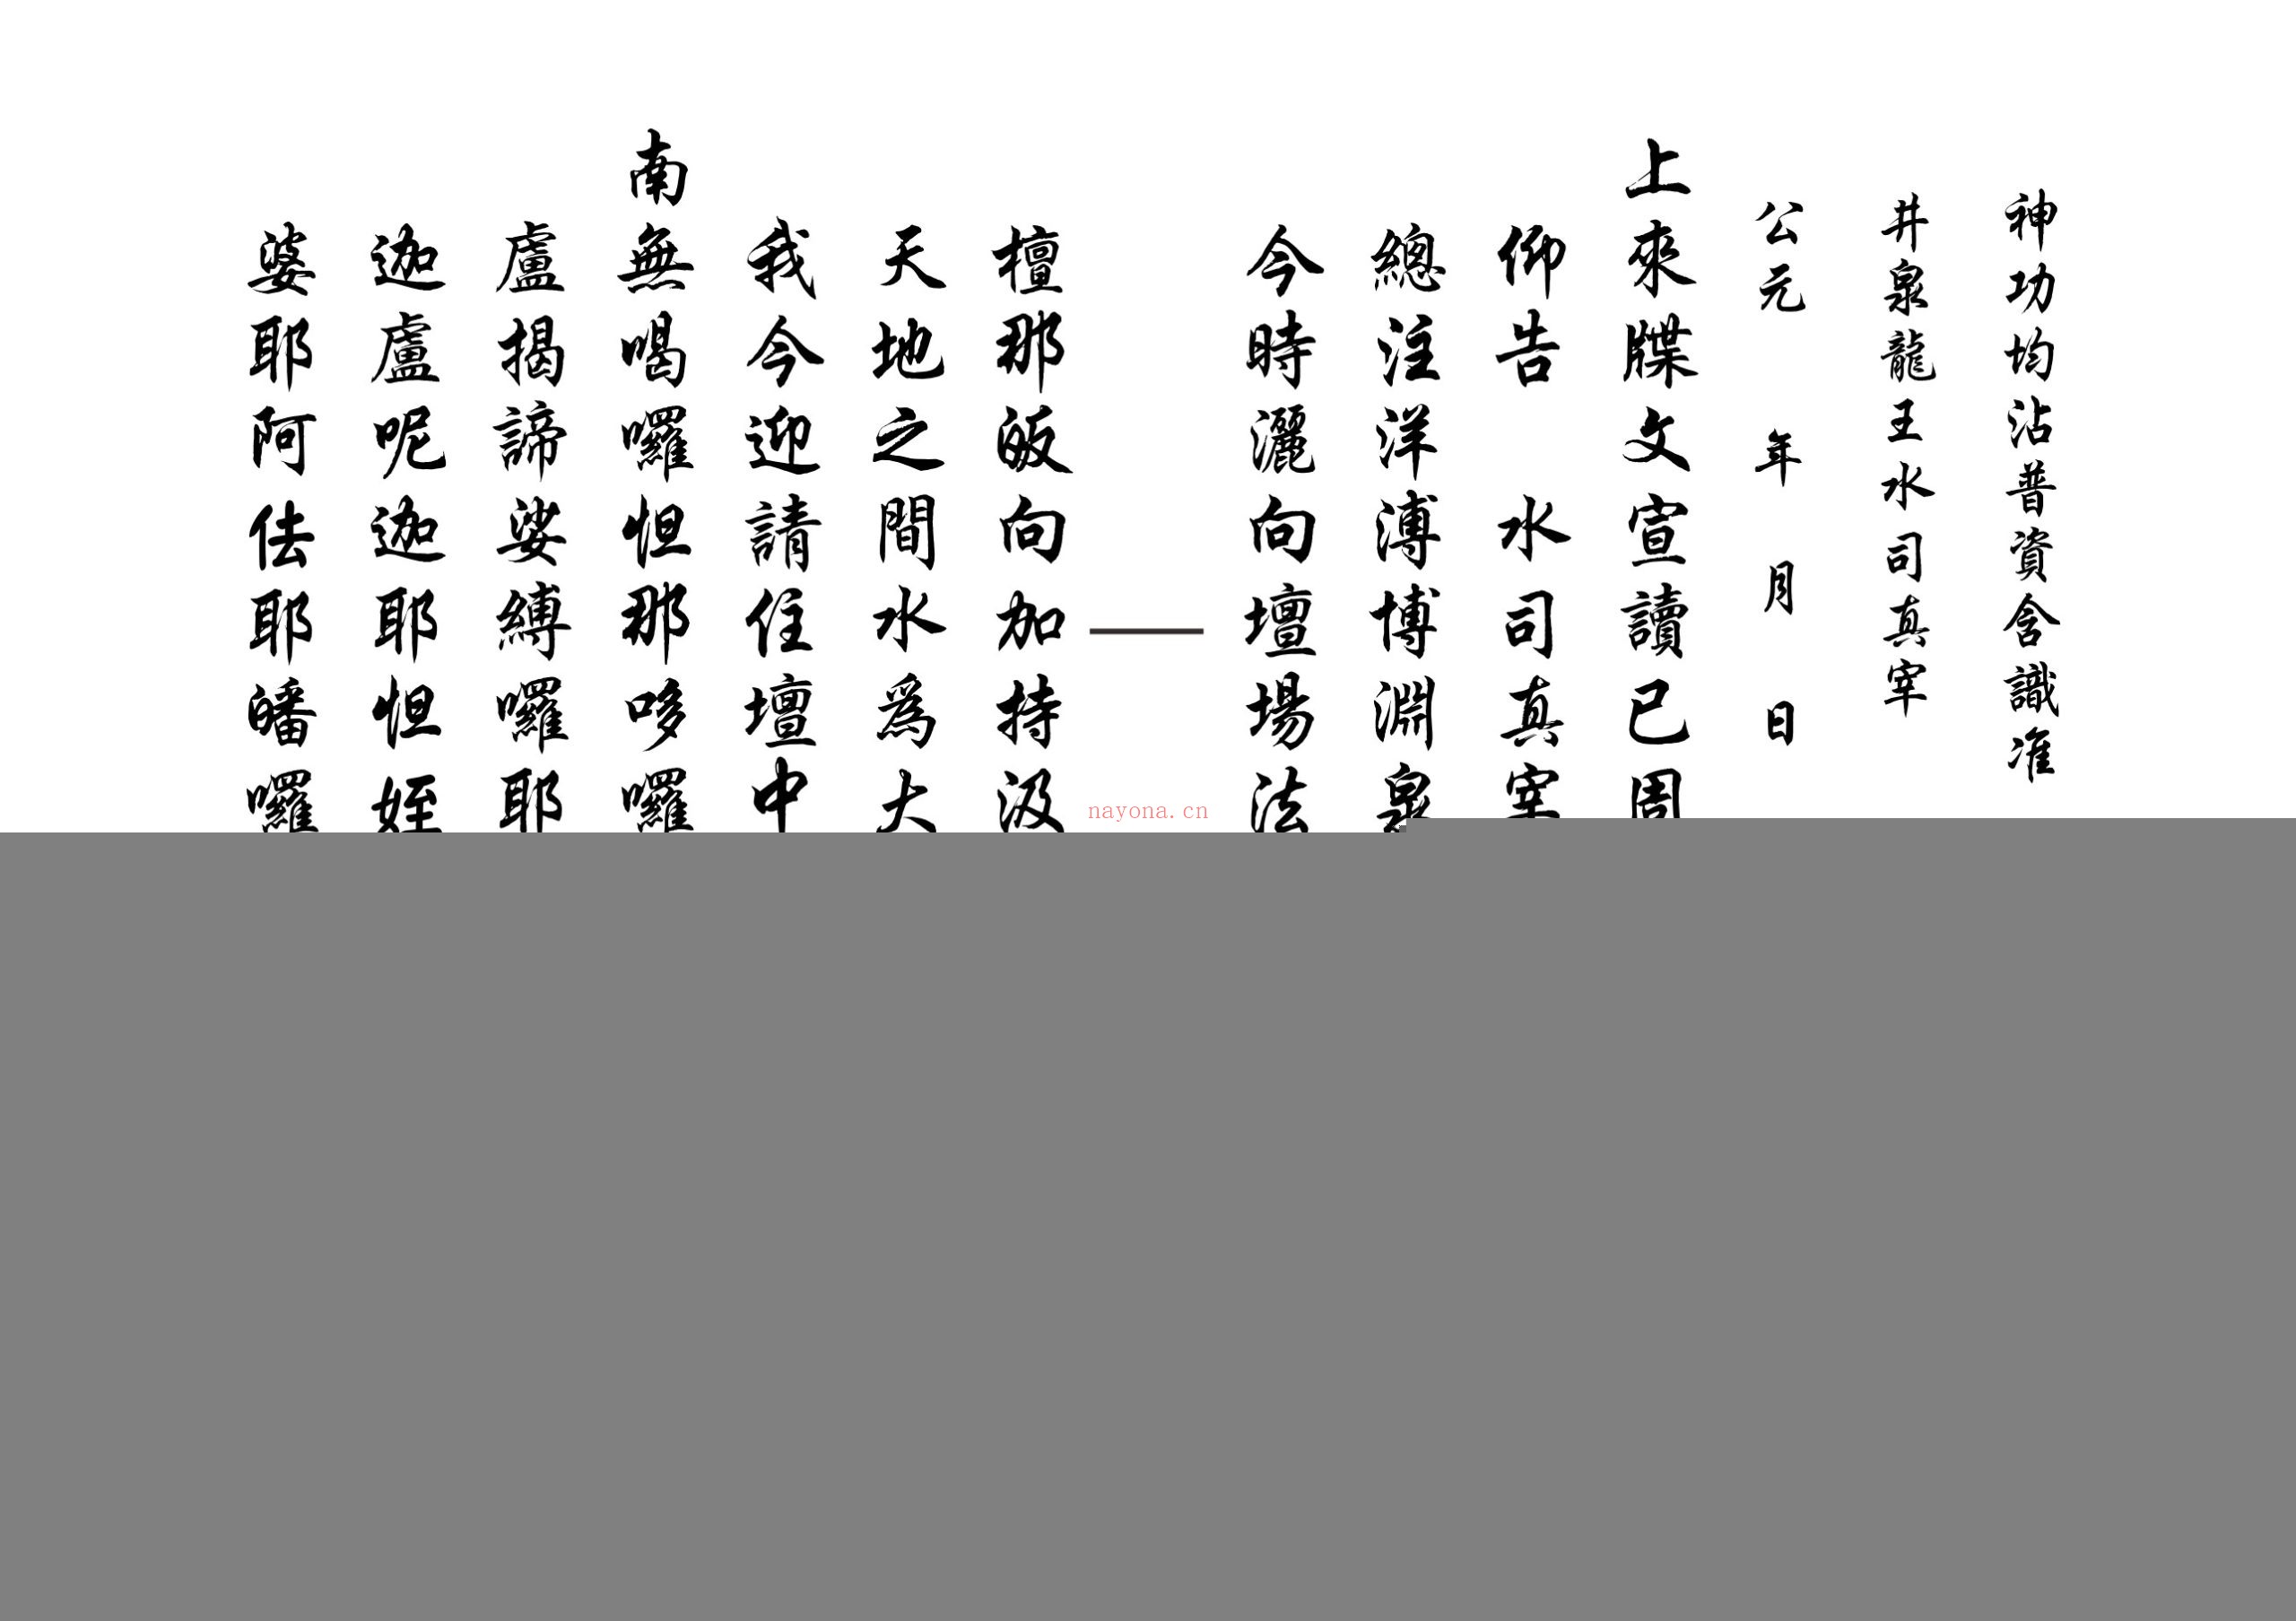 神功均沾普資含識准
井泉龍王水司真宰
公元 年 月 日
上來牒文宣讀已周
仰告 水司真宰
總注洋溥博淵泉
今時灑向壇場法
檀那皈向加持汲
天地之間水為大
我今迎請住壇中
南無喝囉怛那哆囉
盧揭諦娑縛囉耶
迦盧呢迦耶怛姪
婆耶阿佉耶皤囉
nayona.cn